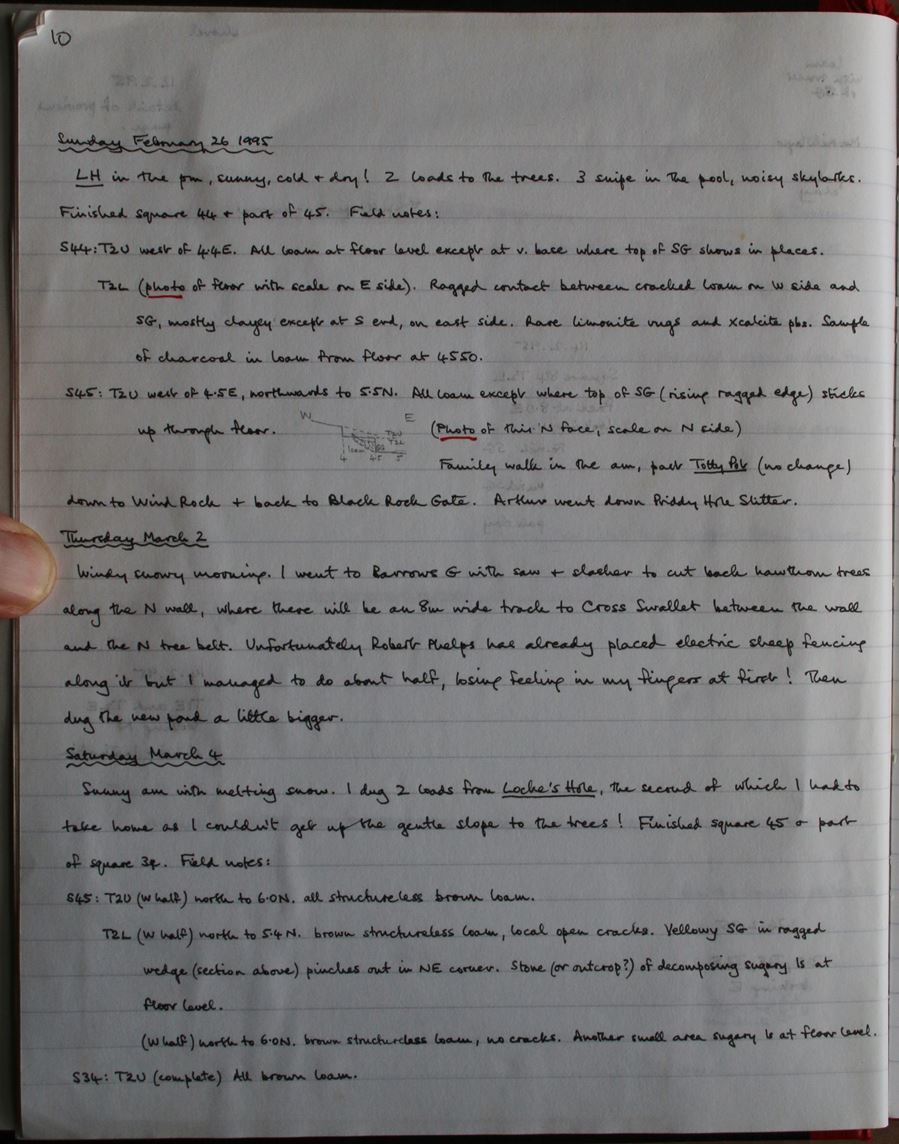 10
Sunday February 26 1995
LH in the pm, sunny, cold + dry! 2 loads to the trees. 3 snipe in the pool, noisy skylarks.
Finished square 44 + part of 45. Field notes:
S44: T2U west of 4.4E. All loam at floor level except at v. base where top of SG shows in places.
T2L (photo of floor with scale on E side). Ragged contact between cracked loam on W side and
SG, mostly clayey except at S end, on east side. Rare limonite vugs and xcalcite pbs. Sample
of charcoal in loam from floor at 4550.
S45: T2U west of 4.5E, northwards to 5.5N. All loam except where top of SG (rising ragged edge) sticks
up through floor. W E T2U T2L loam SG 4 4.5 5 (Photo of this N face, scale on N side)
Family walk in the am, past Totty Pot (no change)
down to Wind Rock + back to Black Rock Gate. Arthur went down Priddy Hole Slitter.
Thursday March 2
Windy snowy morning. I went to Barrows G with saw + slasher to cut back hawthorn trees
along the N wall, where there will be an 8m wide track to Cross Swallet between the wall
and the N tree belt. Unfortunately Robert Phelps has already placed electric sheep fencing
along it but I managed to do about half, losing feeling in my fingers at first! Then
dug the new pond a little bigger.
Saturday March 4
Sunny am with melting snow. I dug 2 loads from Locke's Hole, the second of which I had to
take home as I couldn't get up the gentle slope to the trees! Finished square 45 + part
of square 34. Field notes:
S45: T2U (W half) north to 6.0N. all structureless brown loam.
T2L (W half) north to 5.4N. brown structureless loam, local open cracks. Yellowy SG in ragged
wedge (section above) pinches out in NE corner. Stone (or outcrop?) of decomposing sugary ls at
floor level.
(W half) north to 6.0N. brown structureless loam, no cracks. Another small area sugary ls at floor level.
S34: T2U (complete) All brown loam.